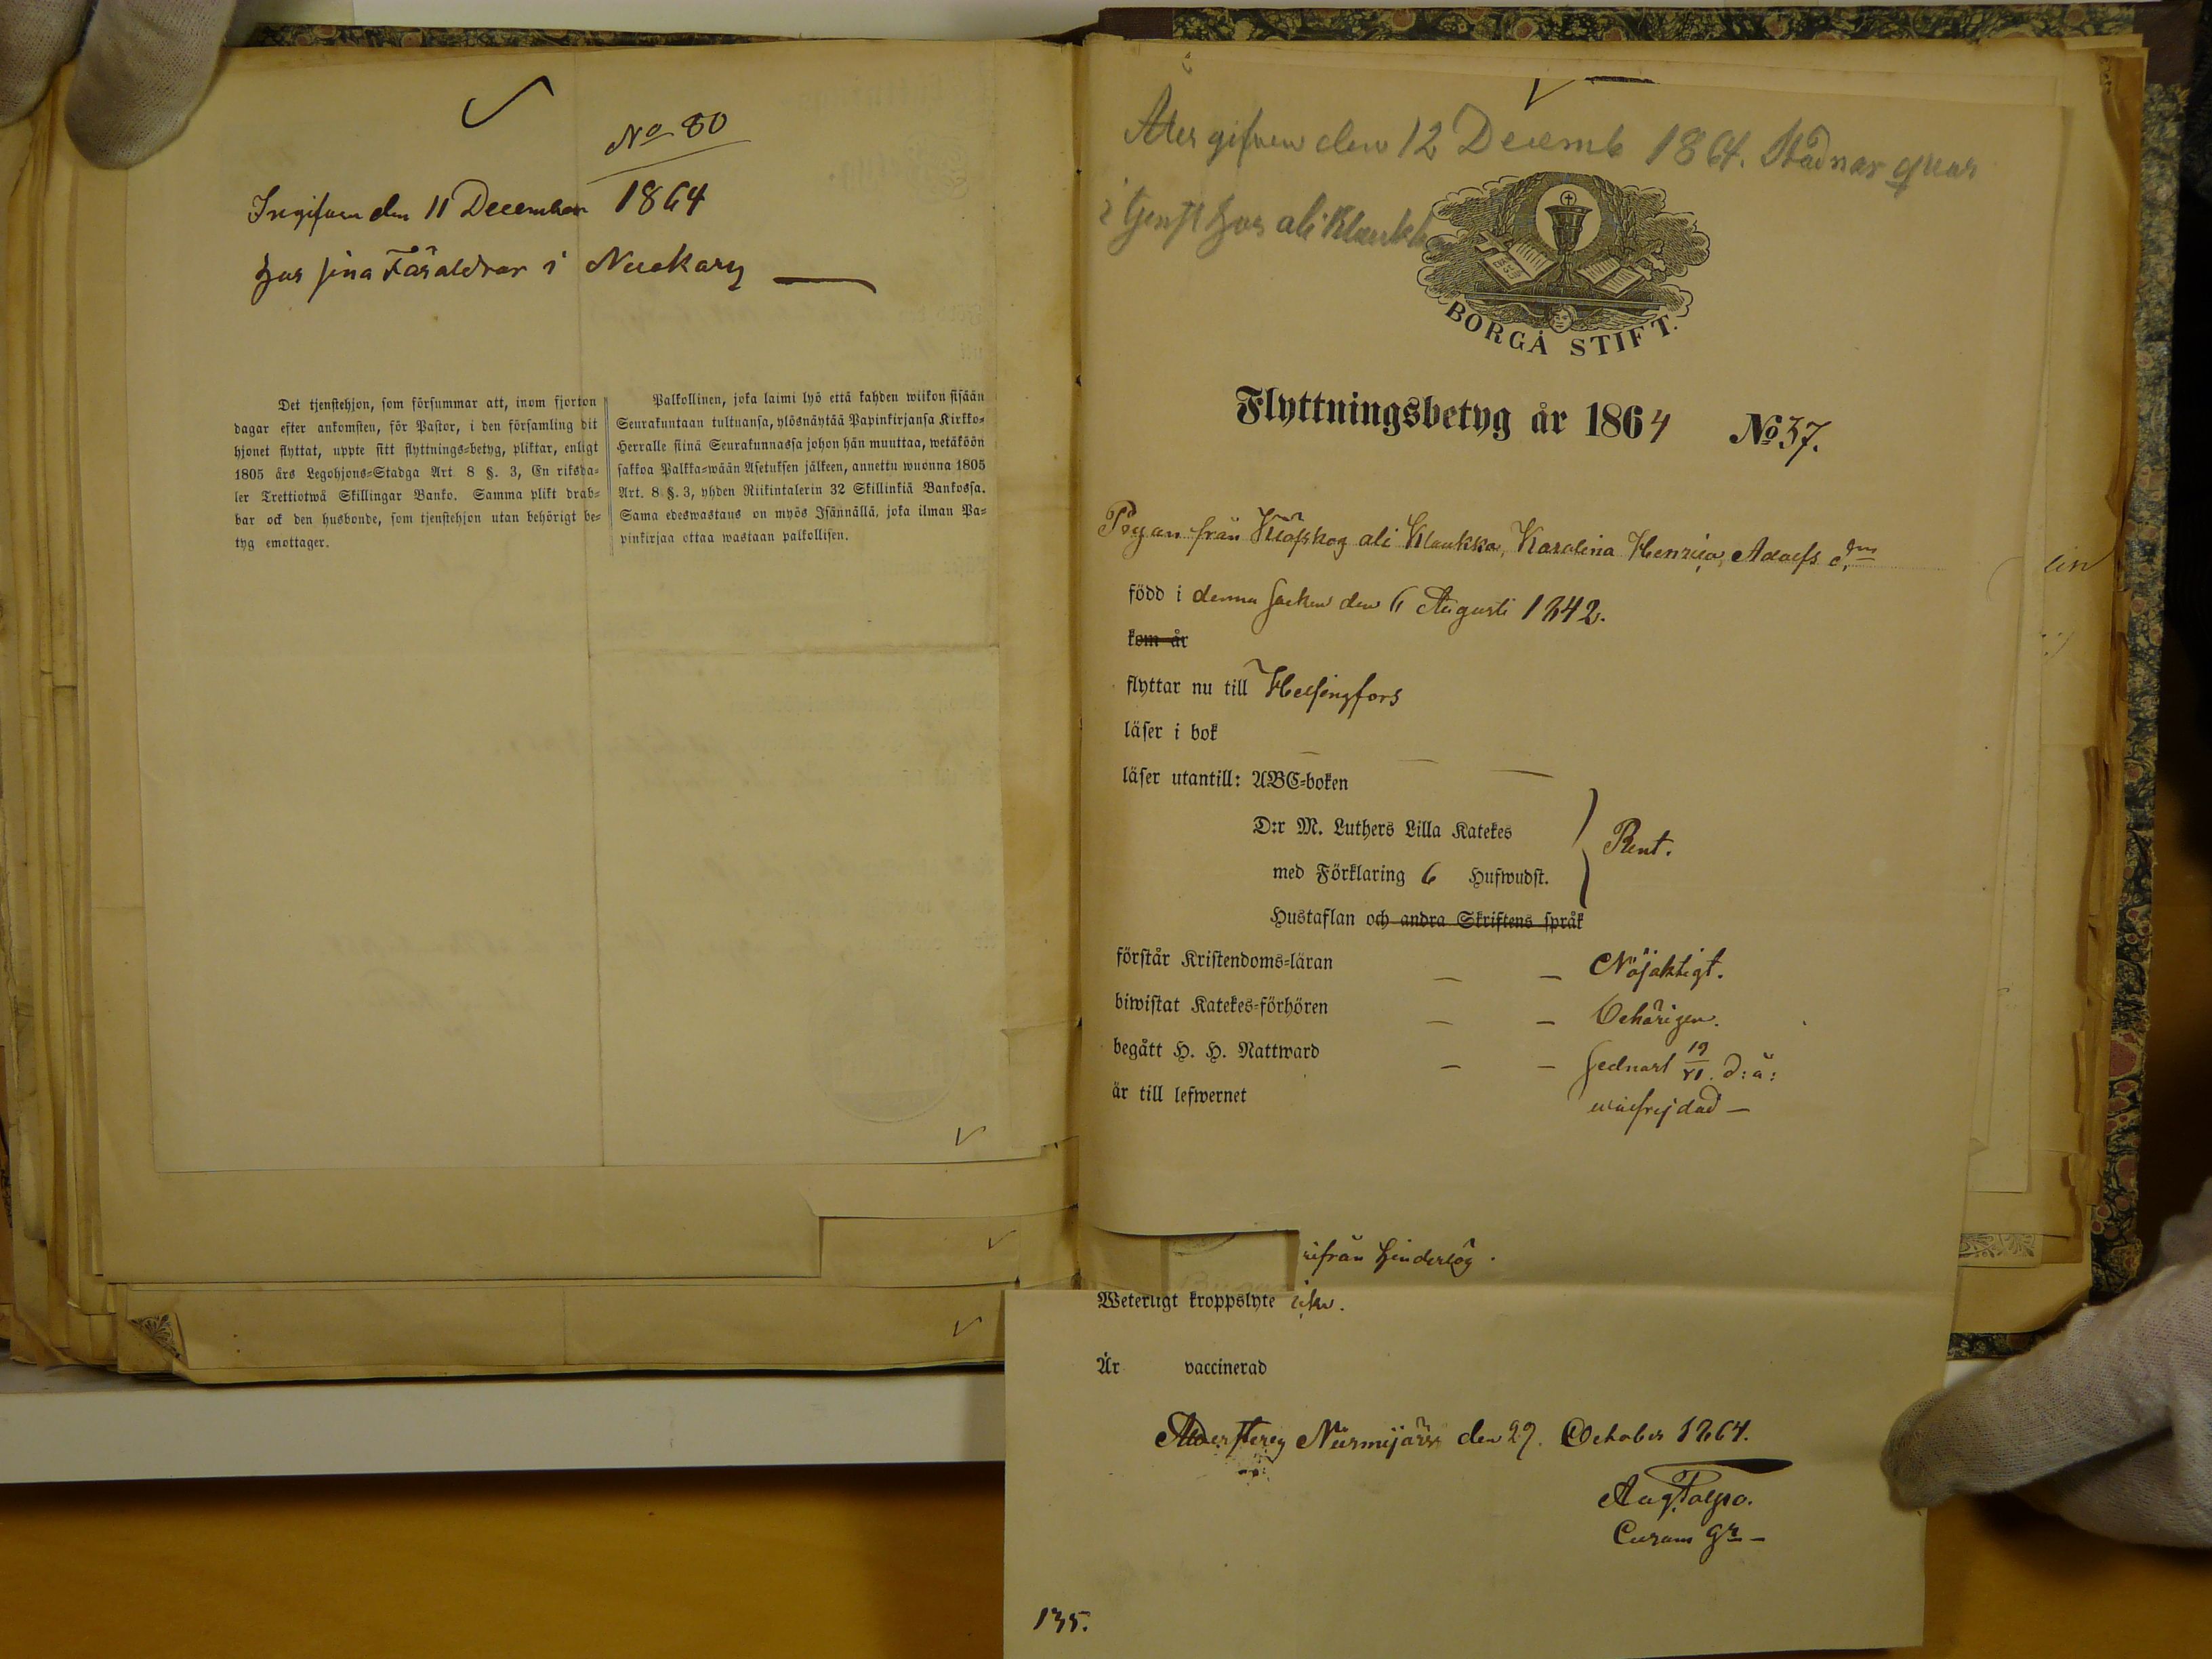 No 80
Ingifven den 11 December 1864
hos sina Föräldrar i Nackary
Det tjenstehjon, som försummar att, inom fjorton
dagar efter ankomsten, för Pastor, i den församling dit
hjonet flyttat, uppte sitt flyttnings-betyg, pliktar, enligt
1805 års Legohjons-Stadga Art. 8 §. 3, En riksda-
ler Trettiotwå Skillingar Banko. Samma plikt drab-
bar ock den husbonde, som tjenstehjon utan behörigt be-
tyg emottager.
Palkollinen, joka laimi lyö että kahden wiikon sisään
Seurakuntaan tultuansa, ylösnäytää Papinkirjansa Kirkko-
Herralle siinä Seurakunnassa johon hän muuttaa, wetäköön
sakkoa Palkka-wään Asetuksen jälkeen, annettu wuonna 1805
Art. 8 §. 3, yhden Riikintalerin 32 Skillinkiä Bankossa.
Sama edeswastaus on myös Isännällä, joka ilman Pa-
pinkirjaa ottaa wastaan palkollisen.
Återgifven den 12 Decemb 1864. Stadnar qvar
i tjenst hos ali Klaukka
BORGÅ STIFT.
Flyttningsbetyg år 1864 No 37.
Pigan från ali Klaukka, Karolina Henrica Adolfs dr
född i denna Socken den 6 Augusti 1842.
kom år
flyttar nu till Helsingfors
läser i bok
läser utantill: ABC-boken
D:r M. Luthers Lilla Katekes
med Förklaring 6 Hufwudst.
Rent.
Hustaflan och andra Skriftens språk
förstår Kristendoms-läran — — Nöjaktigt.
biwistat Katekes-förhören — — Behörigen.
begått H. H. Nattward — — sednast 19/VI d: å:
är till lefwernet wälfrejdad —
ifrån hinderlög.
Weterligt kroppslyte icke.
Är vaccinerad
Nurmijärvi den 29. October 1864.
Aug
Curam gr —
135.